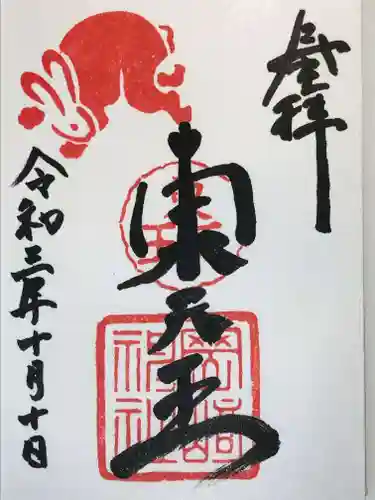 登拝
東天王
岡崎
神社
令和三年十月十日